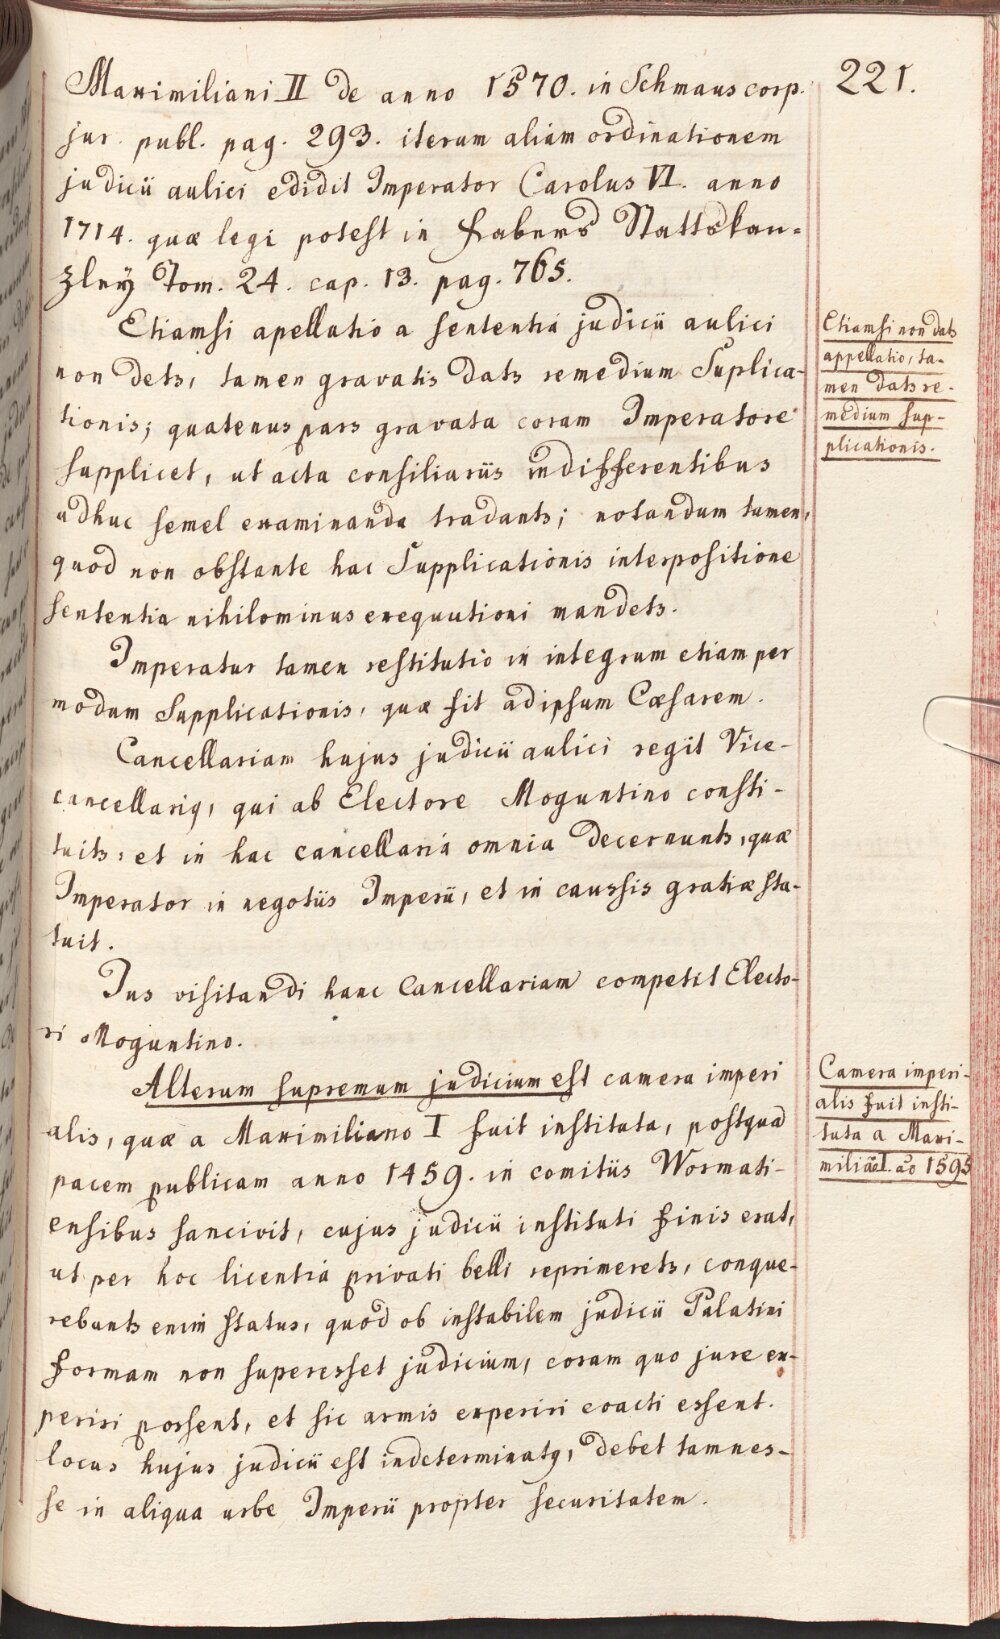 221.
Maximiliani II de anno 1570. in Schmaus corp.
jur. publ. pag. 293. iterum aliam ordinationem
judicii aulici edidit Imperator Carolus VI. anno
1714. quæ legi potest in Fabers Stattskan-
zley Tom. 24. cap. 13. pag. 765.
Etiamsi apellatio a sententiá judicii aulici
non dets, tamen gravatis dats remedium Suplica-
tionis; quatenus pars gravata coram Imperatore
supplicet, ut acta consiliariis indifferentibus
adhuc semel examinanda tradants; notandum tamen,
quod non obstante hac Supplicationis interpositione
sententia nihilominus exequutioni mandets.
Imperatur tamen restitutio in integrum etiam per
modum Supplicationis, quæ fit ad ipsum Cæsarem.
Cancellariam hujus judicii aulici regit Vice-
cancellariq, qui ab Electore Moguntino consti-
tuits, et in hac cancellariá omnia decernunts, quæ
Imperator in negotiis Imperii, et in caussis gratiæ sta-
tuit.
Jus visitandi hanc Cancellariam competit Electo-
ri Moguntino.
Alterum supremum judicium est camera imperi
alis, quæ a Maximiliano I fuit instituta, postquad
pacem publicam anno 1459. in comitiis Wormati-
ensibus sancivit, cujus judicii instituti finis erat,
ut per hoc licentiá privati belli reprimerets, conque-
rebants enim status, quod ob instabilem judicii Palatini
formam non superesset judicium, coram quo jure ex-
periri possent, et sic armis experiri coacti essent.
locus hujus judicii est indeterminatq, debet tamnes-
se in aliqua urbe Imperii propter securitatem.
Etiamsi non dats
appellatio, ta-
men dats re-
medium sup-
plicationis.
Camera imperi-
alis fuit insti-
tuta a Maxi-
miliāo I. ao 1595